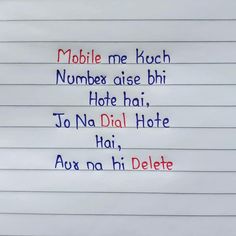 Mobile me Kuch
Number aise bhi
Hote hai,
Jo Na Dial Hote
Hai,
Aur na hi Delete